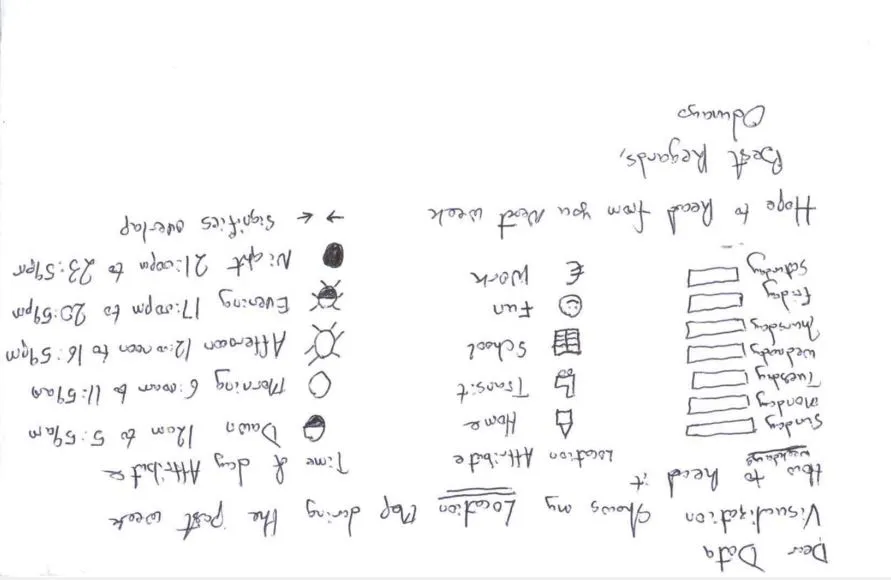 Dear Data
Visualization shows my Location Map during the past week
How to Read it
weekdays Location Attribute Time of day Attribute
Sunday Home Dawn 12am to 5:59am
Monday
Tuesday Transit Morning 6:00am to 11:59am
Wednesday School Afternoon 12:00noon to 16:59pm
Thursday
Friday Fun Evening 17:00pm to 20:59pm
Saturday € Work Night 21:00pm to 23:59pm
→ ← Signifies overlap
Hope to Read from you Next week
Best Regards,